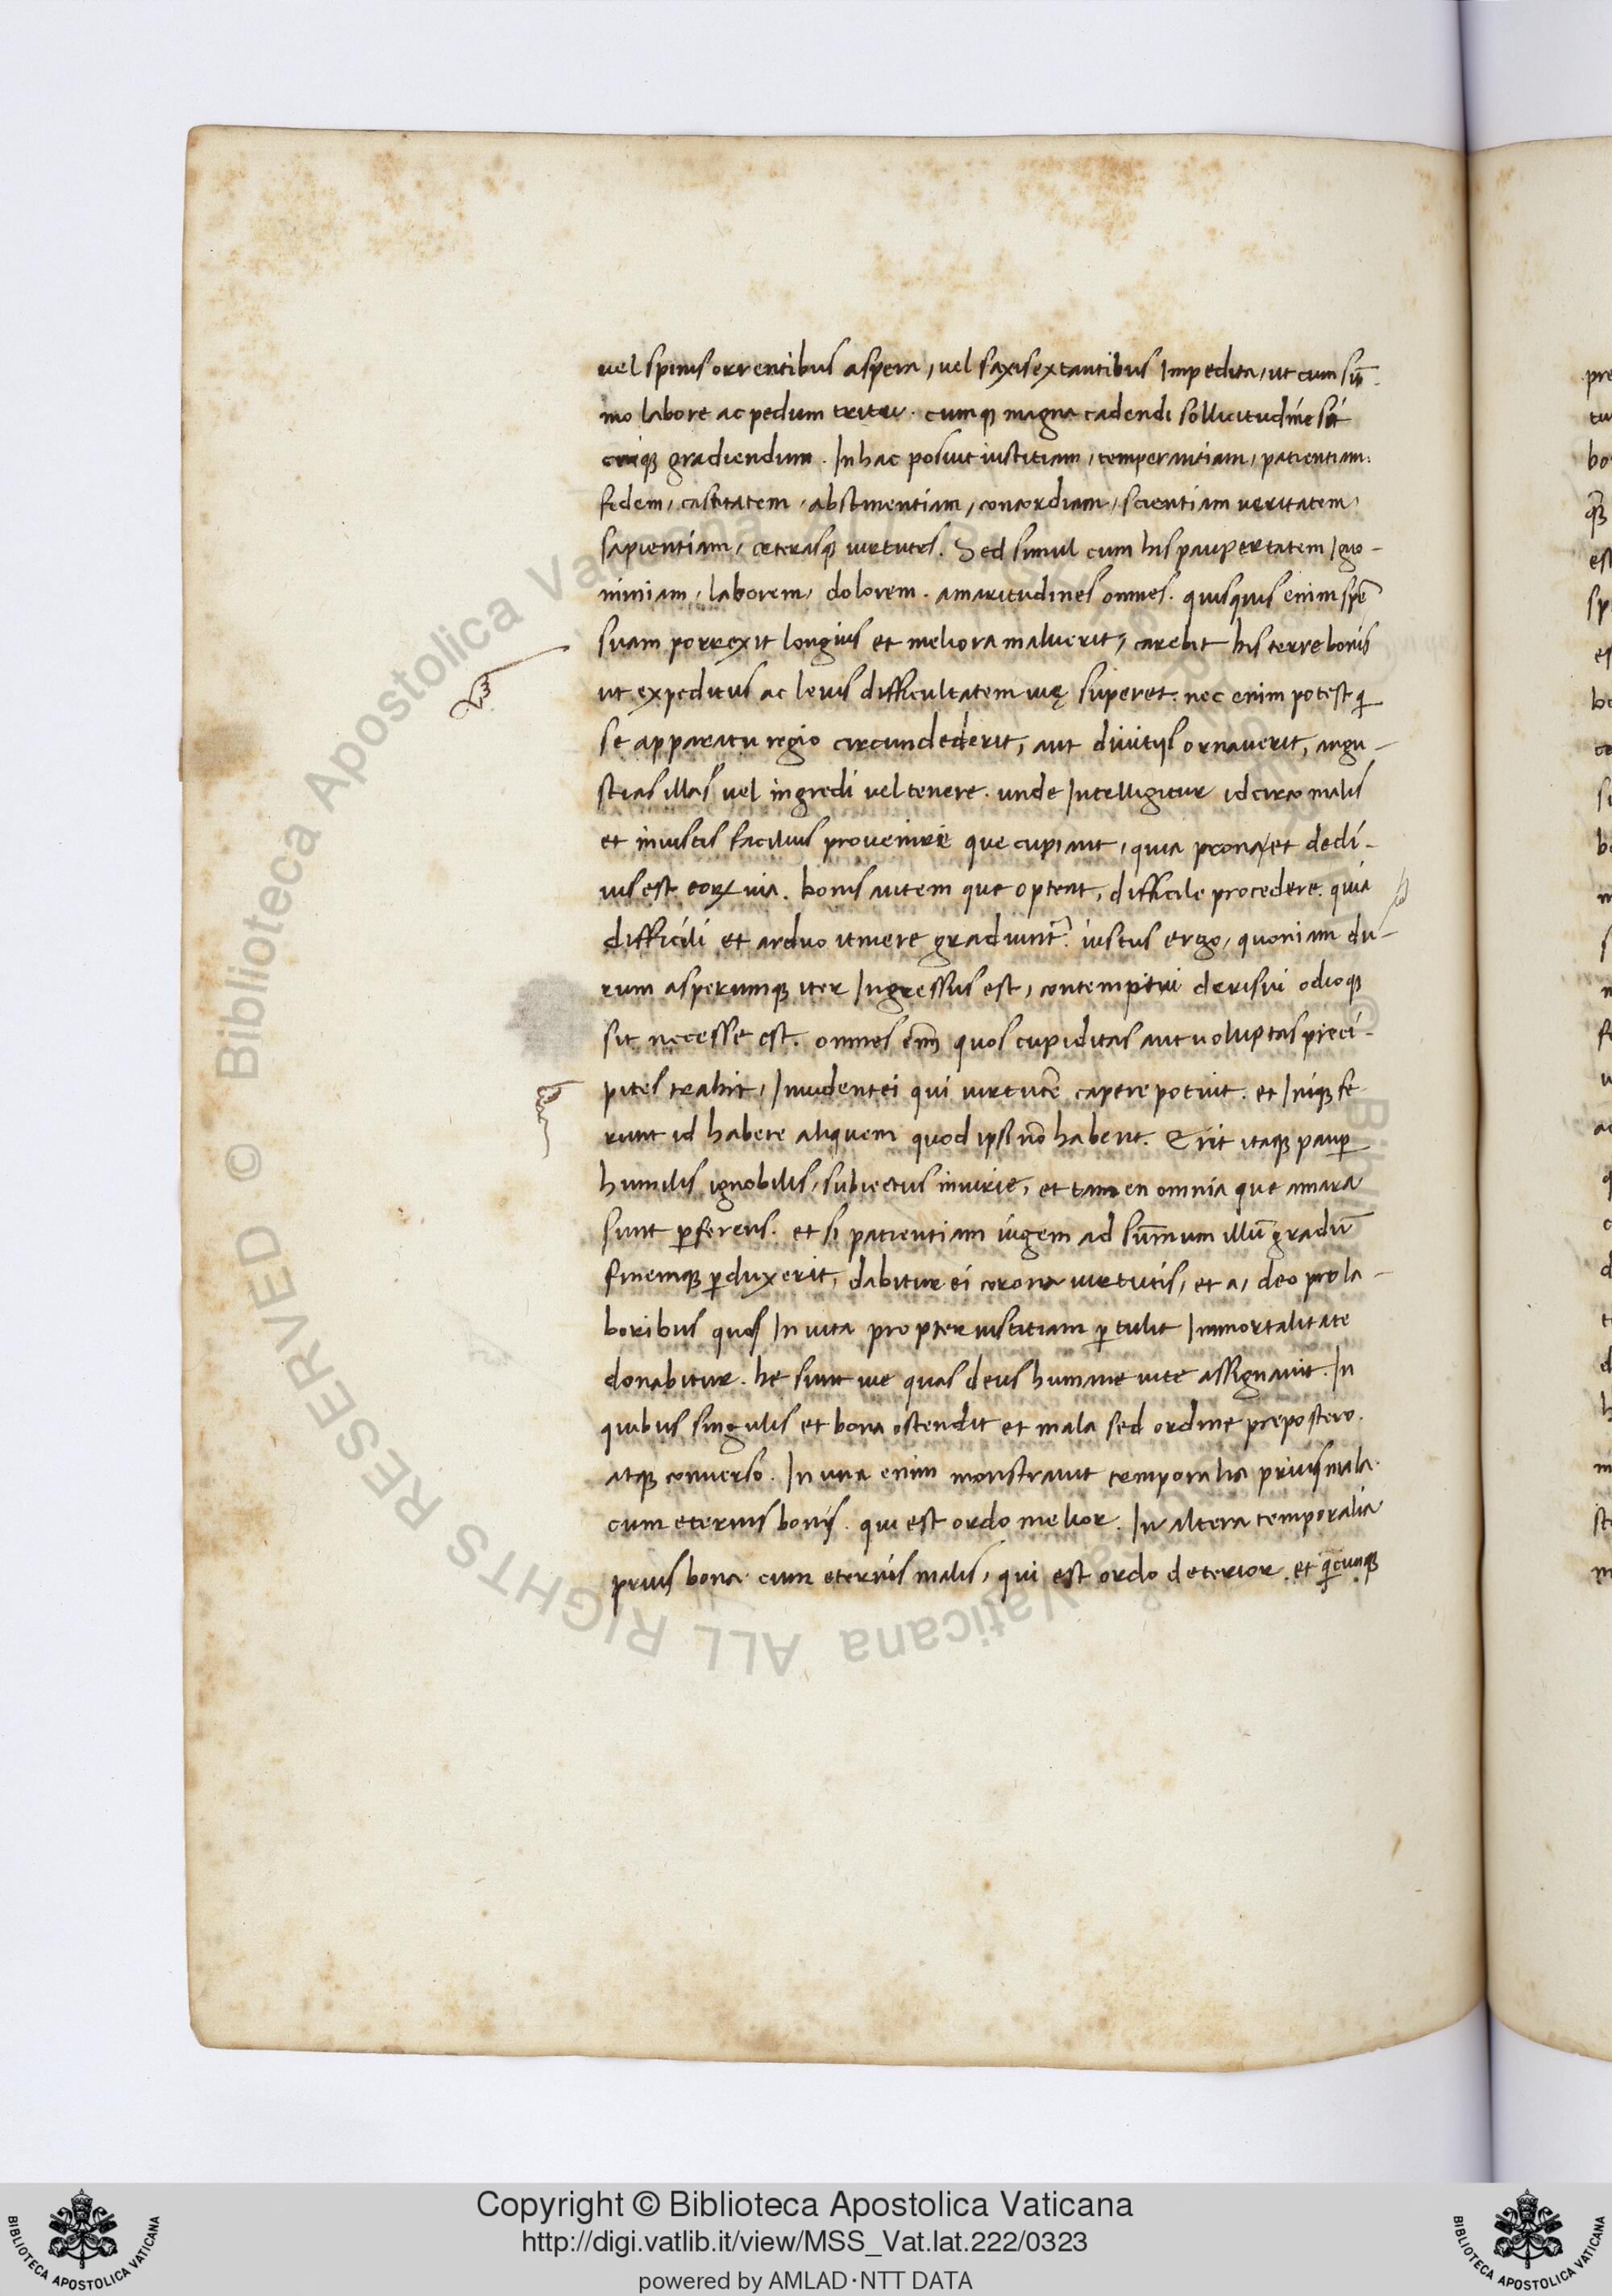 vel spinis orrentibus aspera, vel saxis extantibus Impedita, ut cum sū-
mo labore ac pedum tritu. cumqꝫ magna cadendi sollicitudine sit
gradiendum. In hac posuit iustitiam, temperantiam, patientiam.
fidem, castitatem, abstinentiam, concordiam, scientiam veritatem,
sapientiam, ceterasqꝫ virtutes. Sed simul cum his paupertatem Igno-
miniam, laborem, dolorem. amaritudines omnes. quisquis enim spē
suam porrexit longius et meliora maluerit, carebit his terre bonis
ut expeditus ac levis difficultatem vię superet. nec enim potest qͥ
se apparatu regio circundederit, aut divitijs ornaverit, angu-
stias illas vel ingredi vel tenere. unde Intelligitur idcirco malis
et iniustis facilius provenire que cupiunt, quia prona et decli-
vis est eoꝝ via. bonis autem que optent, difficile procedere. quia
difficili et arduo itinere gradiunt̃. iustus ergo, quoniam du-
rum asperumqꝫ iter Ingressus est, contemptui derisui odioqꝫ
sit necesse est. omnes em̄ quos cupiditas aut voluptas preci-
pites trahit, Invident ei qui virtutē capere potuit. et Iniqꝫ fe
runt id habere aliquem quod ipsi nō habent. Erit itaqꝫ paup̱
humilis ignobilis, subiectus iniurie, et tamen omnia que amara
sunt p̱ferens. et si patientiam iugem ad sūmum illū gradū
finemqꝫ p̱duxerit, dabitur ei corona virtutis, et a, deo pro la-
boribus quos In vita propter iustitiam p̱tulit Immortalitate
donabitur. he sunt vie quas deus humane vite assignavit. In
quibus singulis et bona ostendit et mala sed ordine prepostero.
atqꝫ converso. In una enim monstravit temporalia prius mala.
cum eternis bonis. qui est ordo melior. In altera temporalia
prius bona. cum eternis malis, qui est ordo deterior. et qͥcunqꝫ
Copyright © Biblioteca Apostolica Vaticana
http://digi.vatlib.it/view/MSS_Vat.lat.222/0323
powered by AMLAD·NTT DATA
BIBLIOTECA APOSTOLICA VATICANA
BIBLIOTECA APOSTOLICA VATICANA